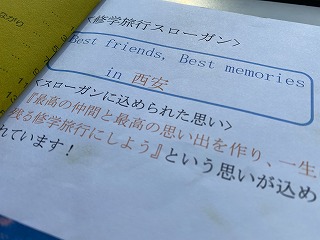 <修学旅行スローガン>
Best friends, Best memories
in 西安
<スローガンに込められた思い>
『最高の仲間と最高の思い出を作り、一生
残る修学旅行にしよう』という思いが込め
れています！